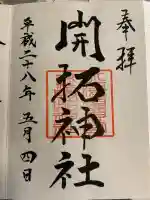 奉拝
開拓神社
平成二十八年五月四日